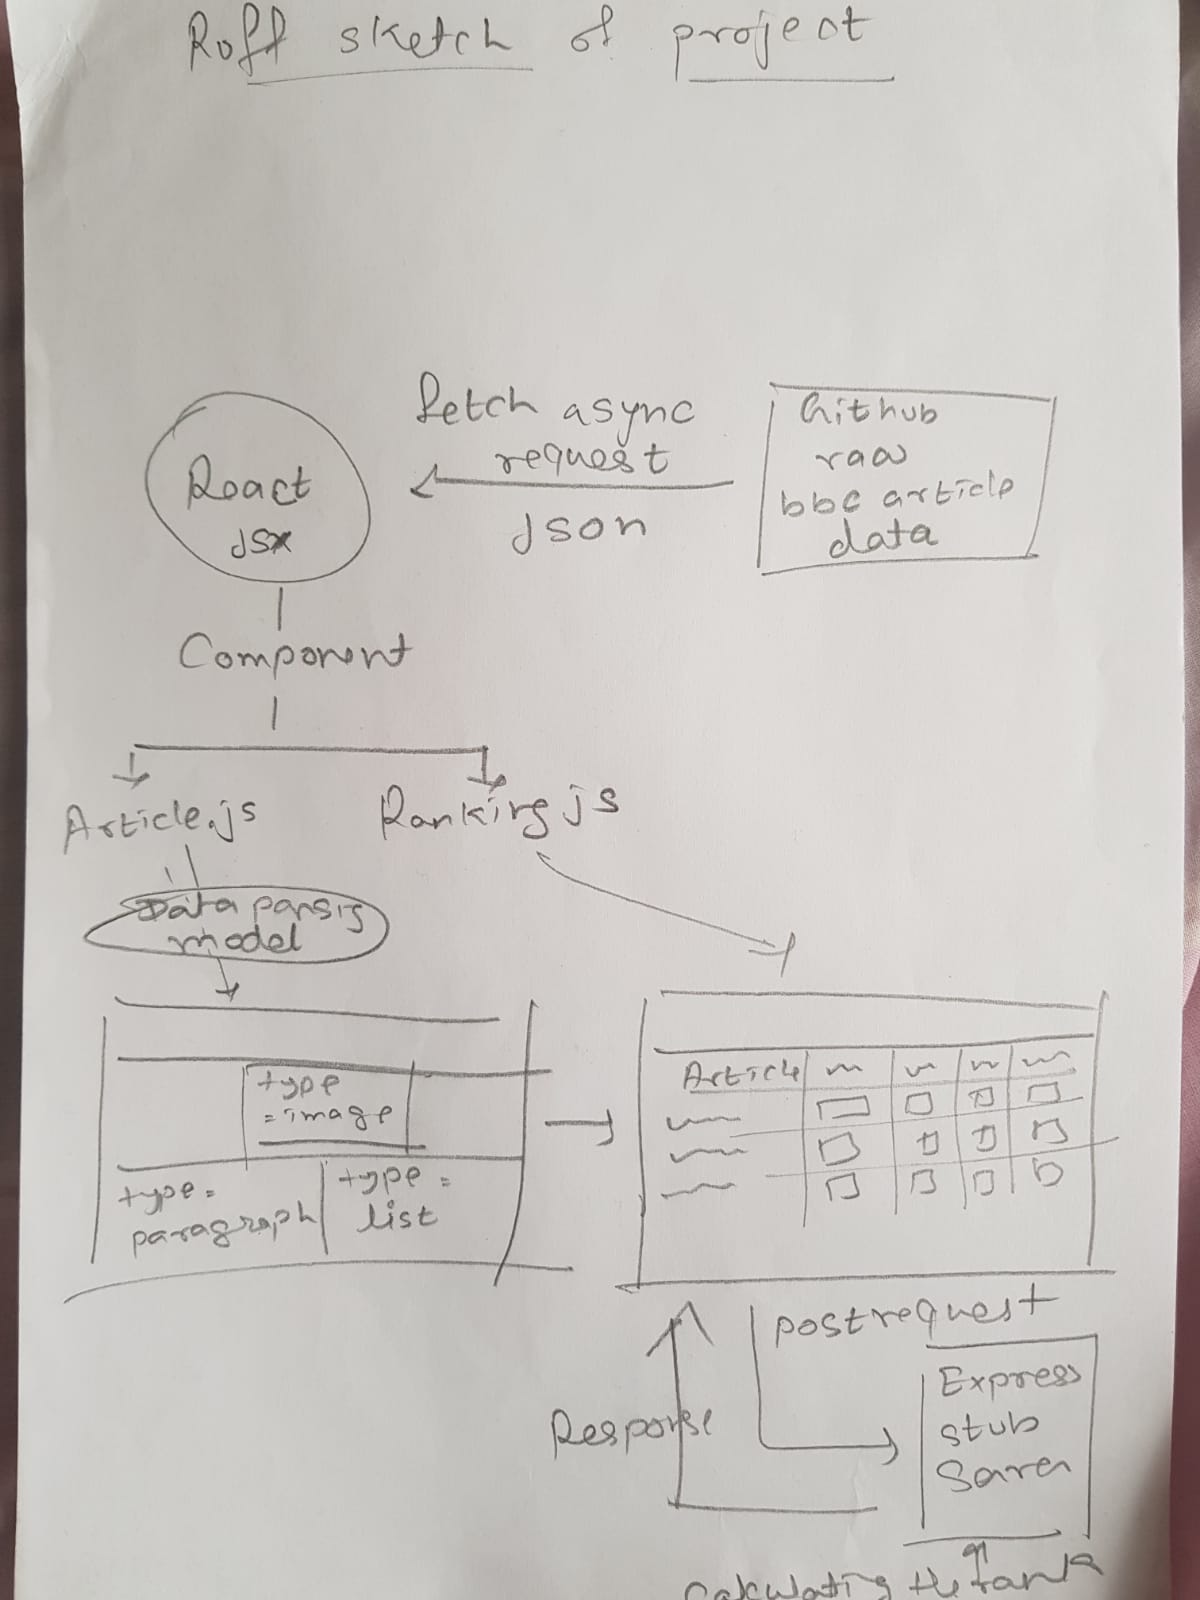 Roff sketch of project
fetch async
request
Json
Github
raw
bbc article
data
React
JSX
Component
Article.js
Ranking js
Data parsing
model
type
=image
type=
paragraph
type=
list
Article
post request
Response
Express
stub
Server
Calculating the rank